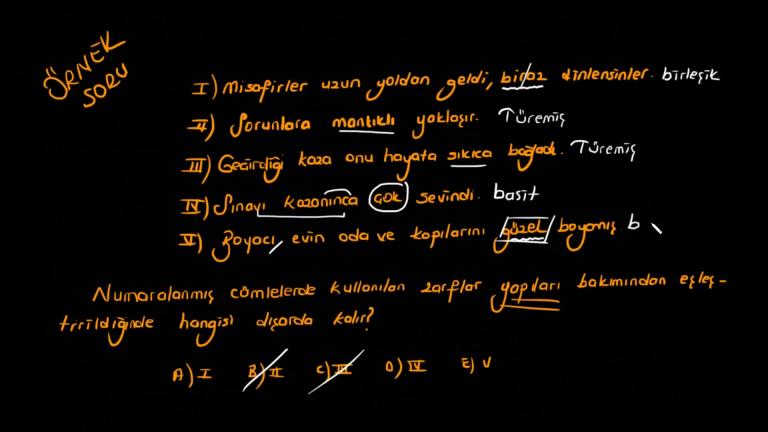 ÖRNEK
SORU
I) Misafirler uzun yoldan geldi, biraz dinlensinler. birleşik
II) Sorunlara mantıklı yaklaşır. Türemiş
III) Geçirdiği kaza onu hayata sıkıca bağladı. Türemiş
IV) Sınavı kazanınca çok sevindi. basit
V) Boyacı, evin oda ve kapılarını güzel boyamış b
Numaralanmış cümlelerde kullanılan zarflar yapıları bakımından eşleş-
tirildiğinde hangisi dışarda kalır?
A) I B) II C) III D) IV E) V